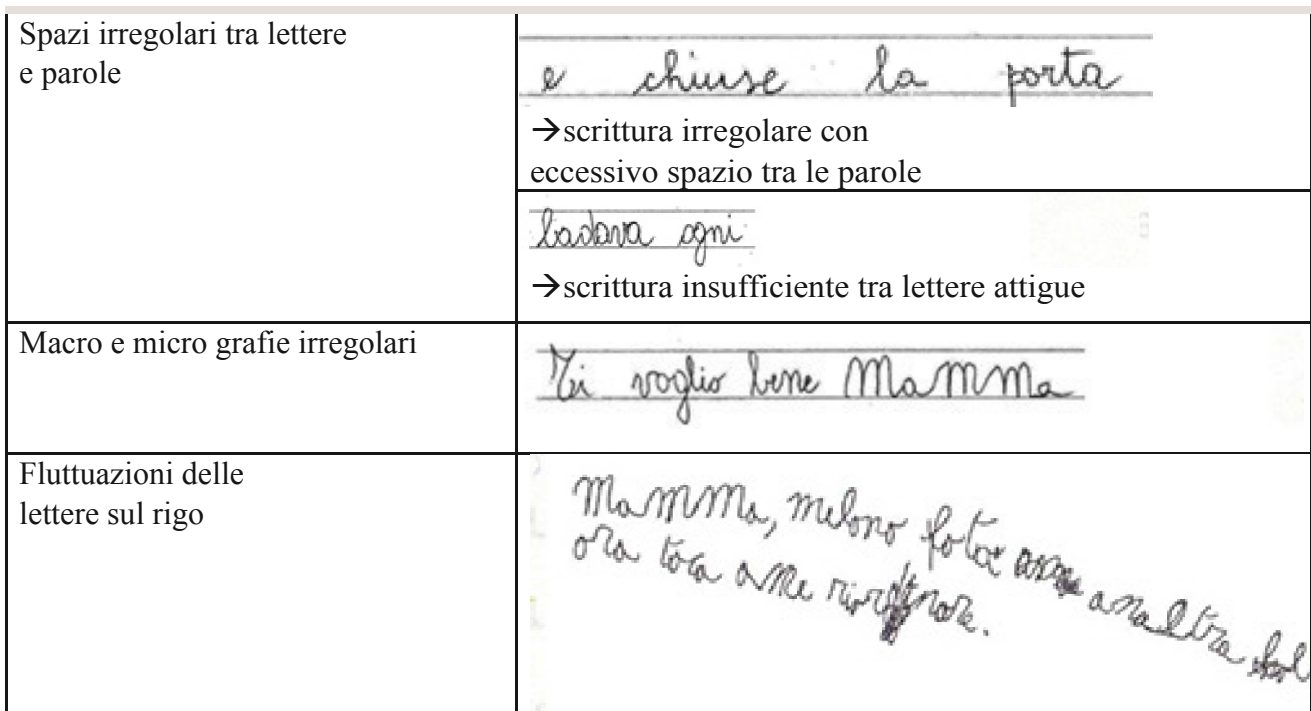 Spazi irregolari tra lettere
e parole
e chiuse la porta
→scrittura irregolare con
eccessivo spazio tra le parole
badava ogni
→scrittura insufficiente tra lettere attigue
Macro e micro grafie irregolari
Ti voglio bene MaMMa
Fluttuazioni delle
lettere sul rigo
MaMMa, melono
ora toca a me